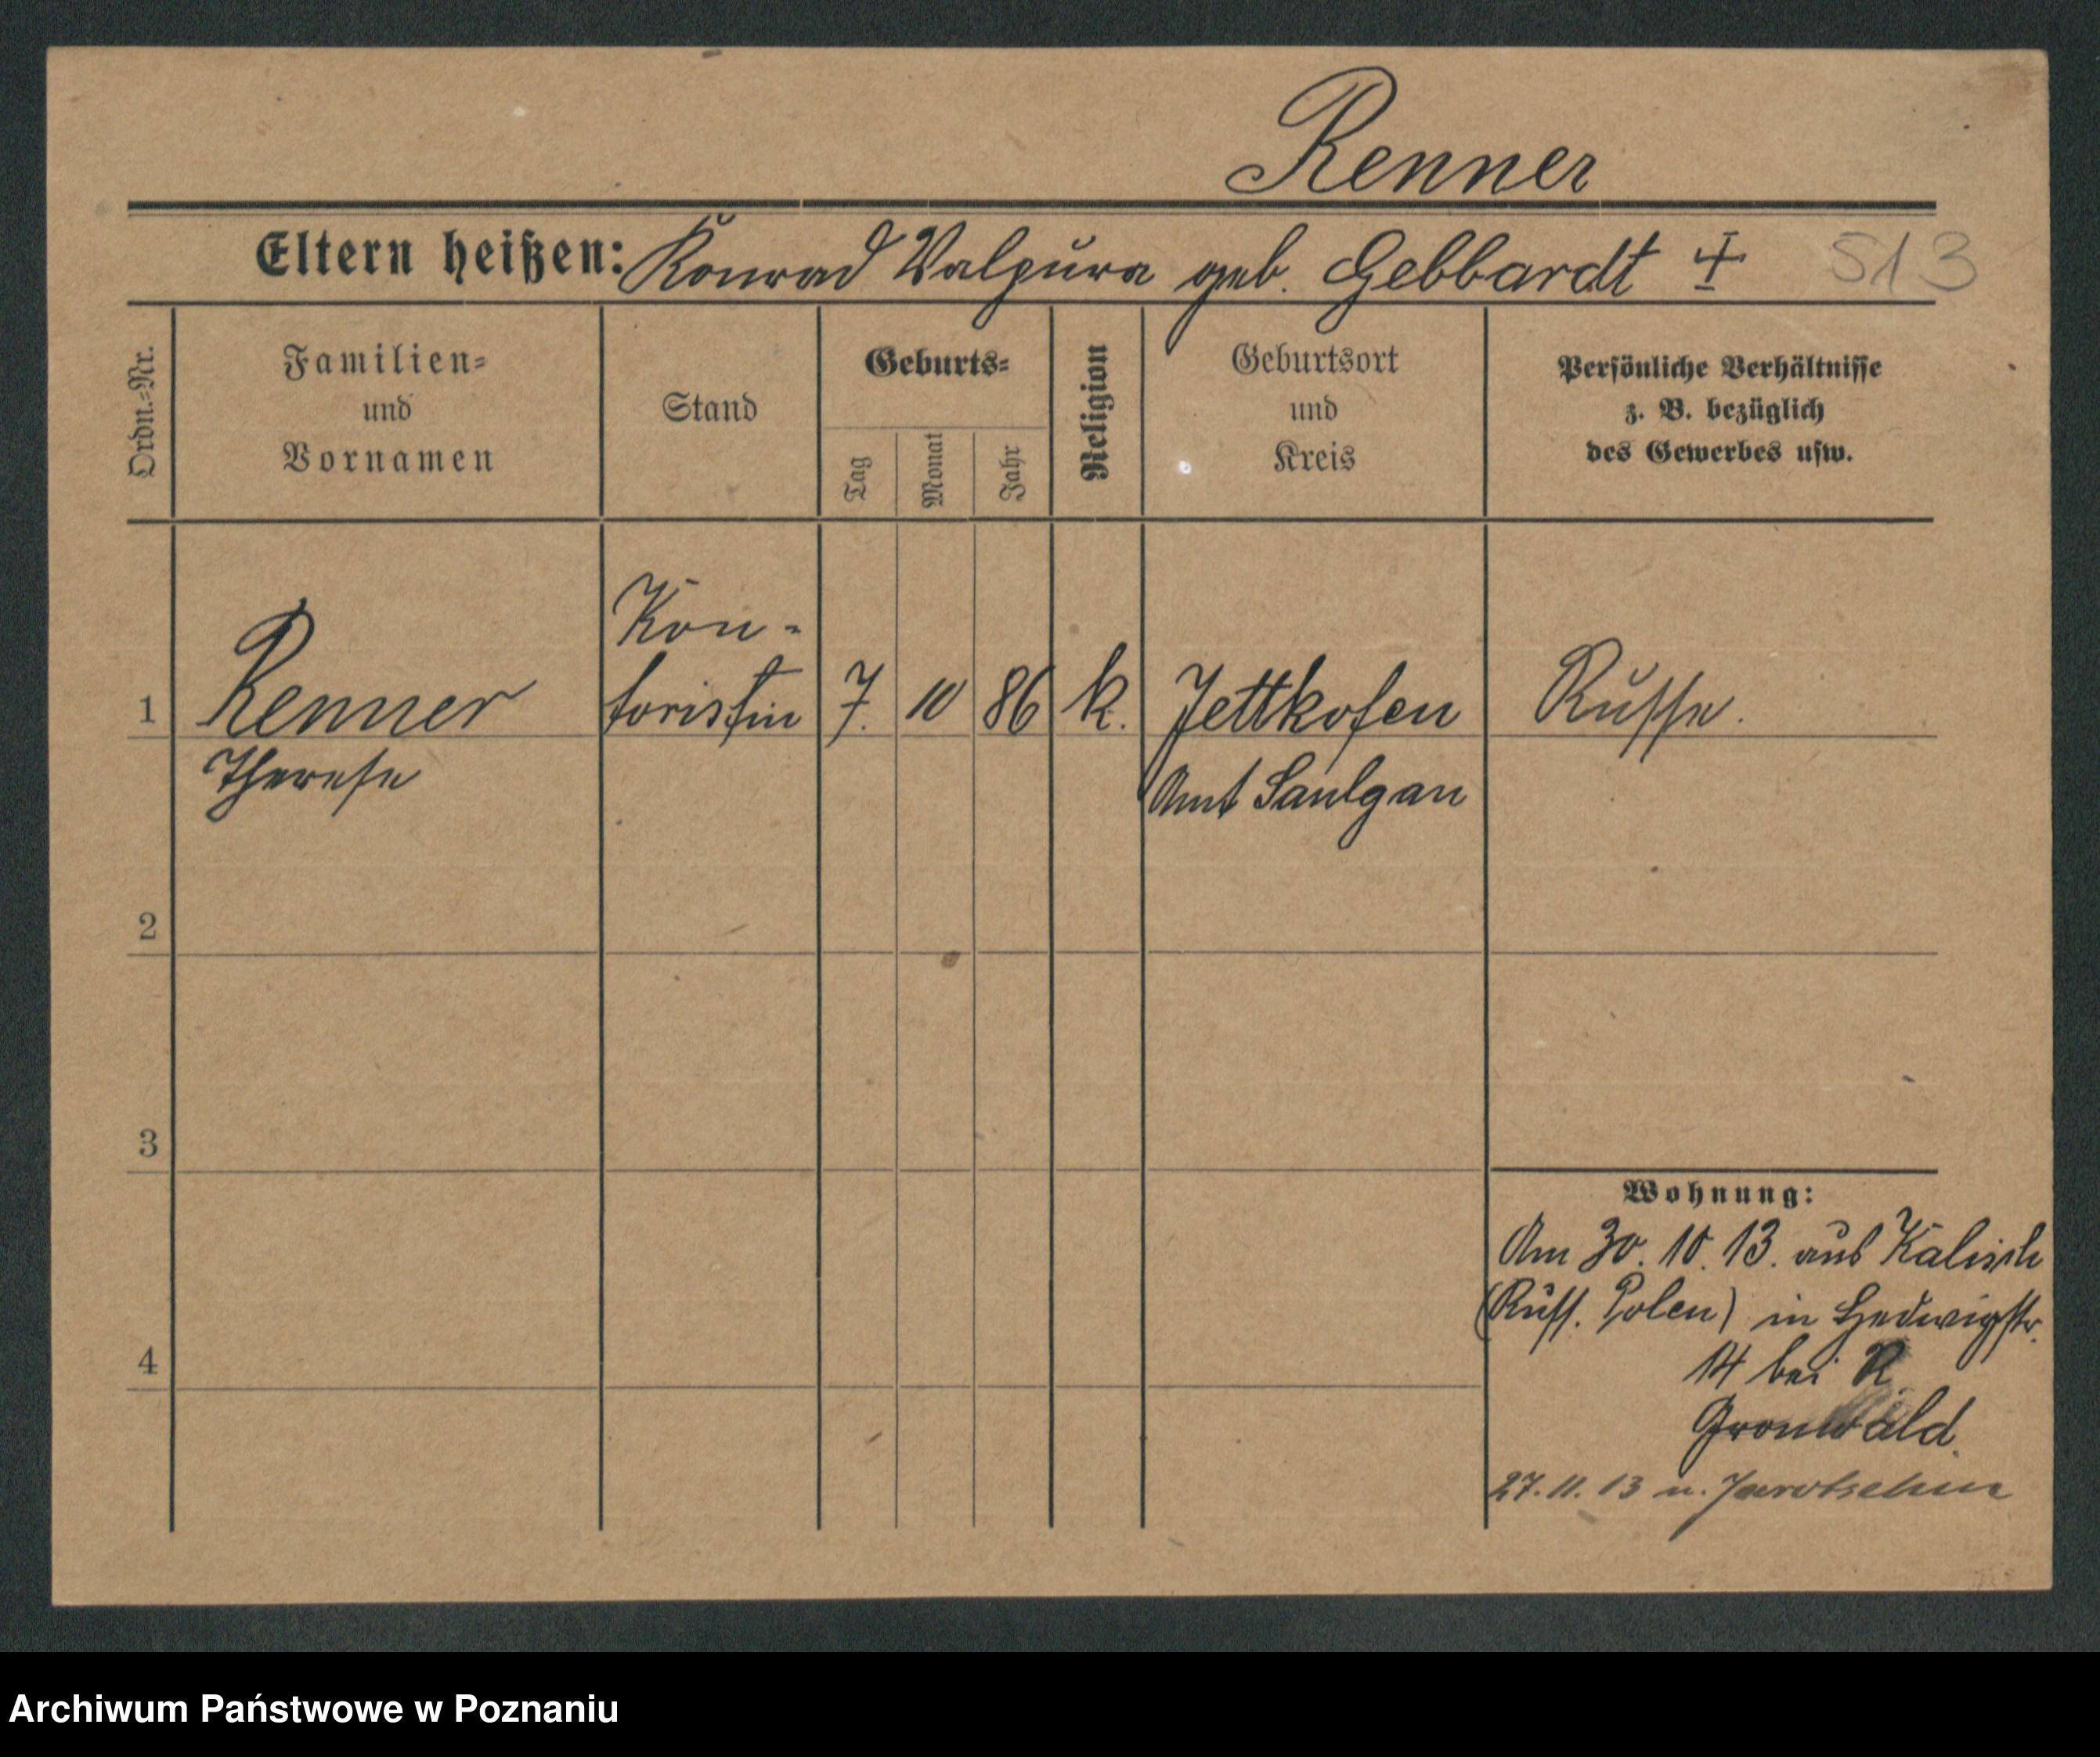 Renner
Eltern heißen: Konrad Walpura geb. Gebbardt 513
Ordn.-Nr.
Familien-
und
Vornamen
Stand
Geburts-
Tag
Monat
Jahr
Religion
Geburtsort
und
Kreis
Persönliche Verhältnisse
z. B. bezüglich
des Gewerbes usw.
Kon-
1 Renner toristin 7. 10 86 k. Jettkofen Russe.
Therese Amt Saulgau
2
3
4
Wohnung:
Am 30. 10. 13. aus Kalisch
(Russ. Polen) in Hedwigstr.
14 bei R
Gronwald.
27. 11. 13 n. Jarotschin
Archiwum Państwowe w Poznaniu